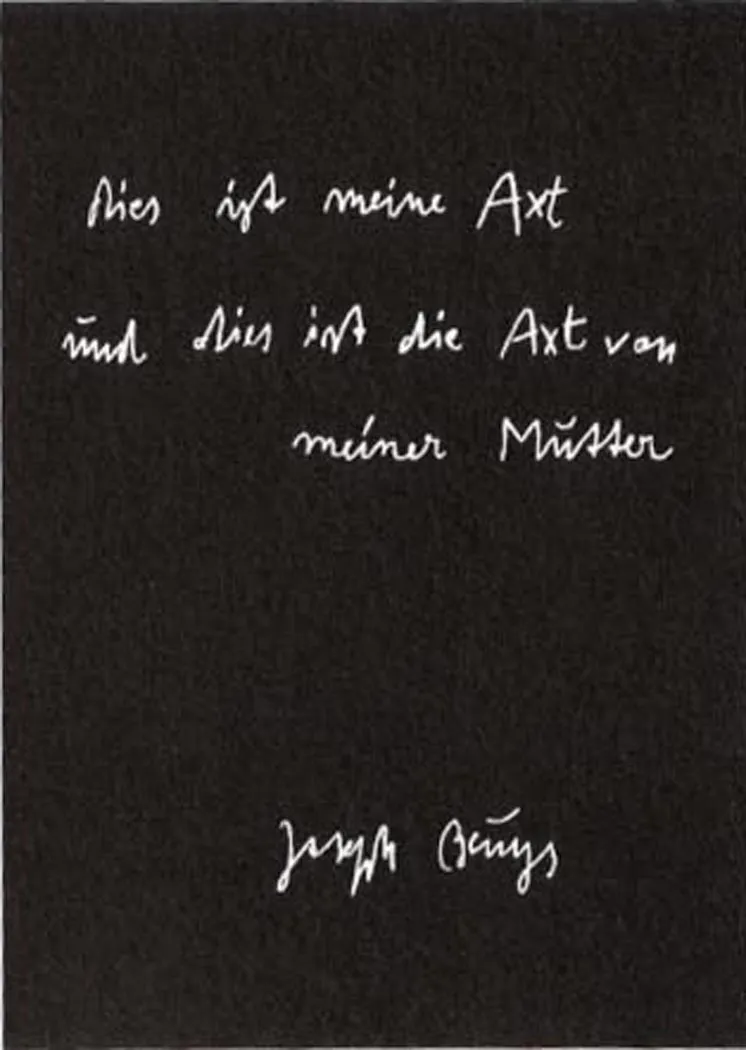 dies ist meine Axt
und dies ist die Axt von
meiner Mutter
Joseph Beuys